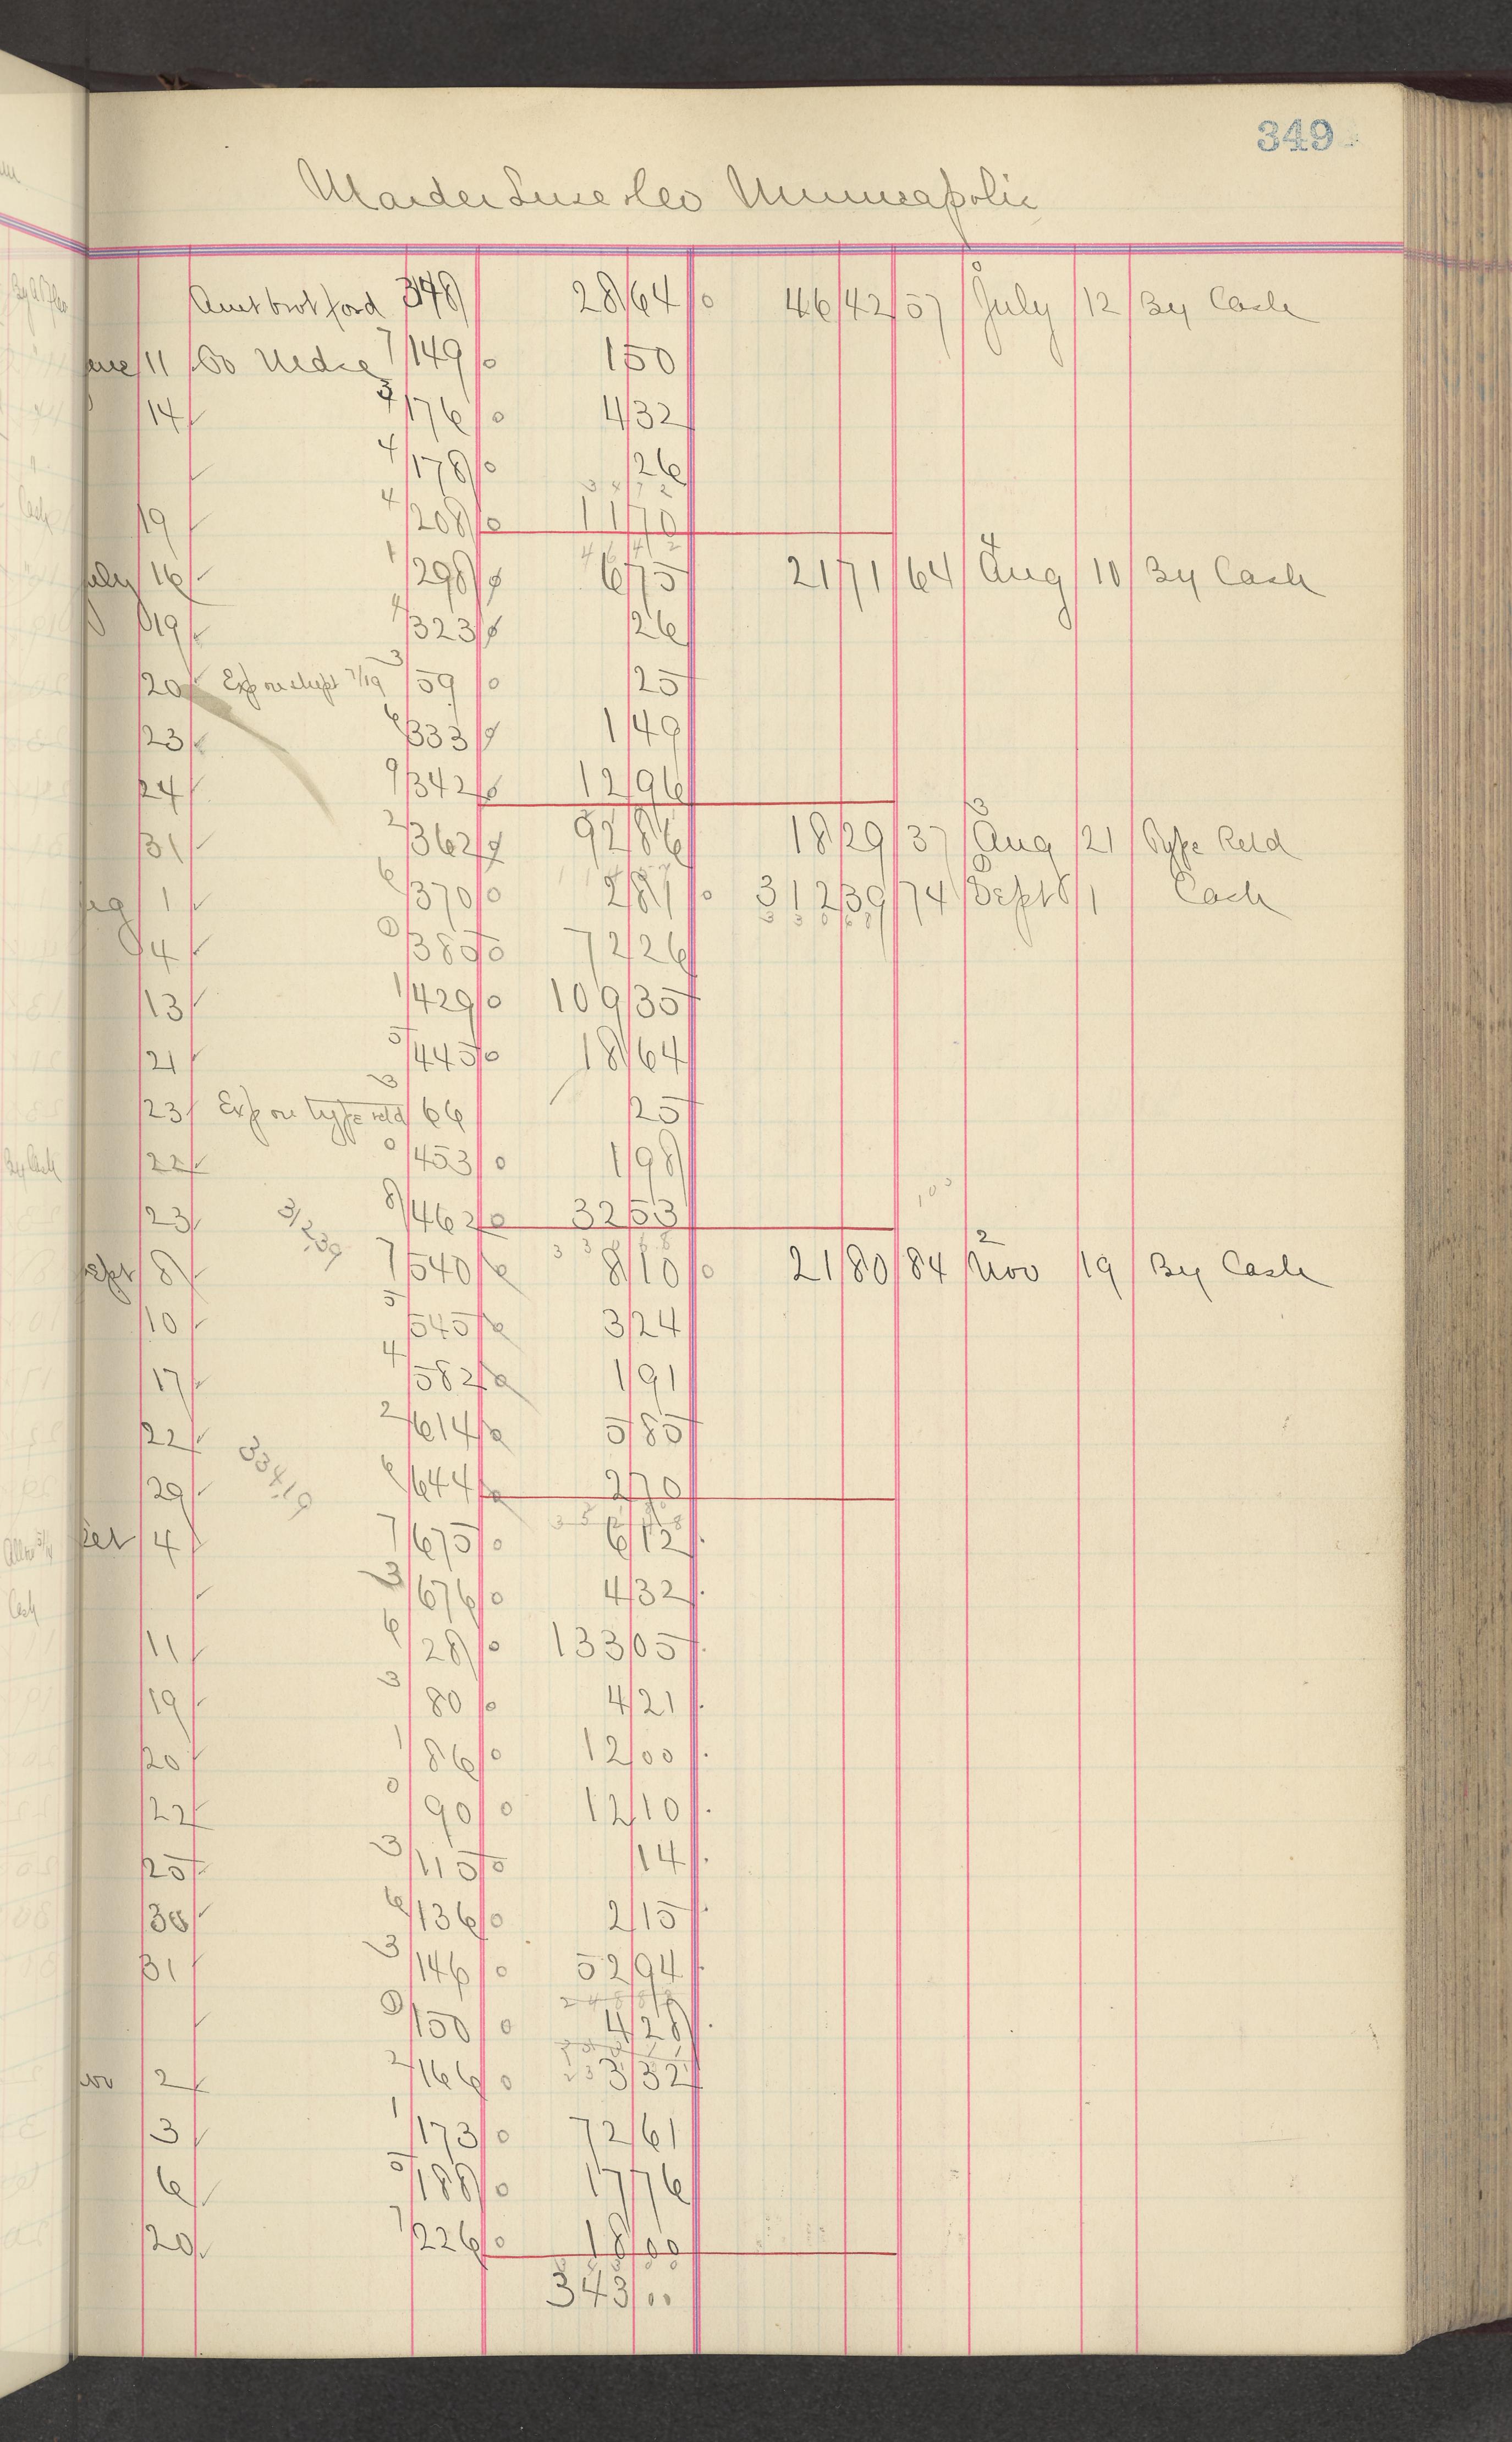 349
Marder Luse & Co Minneapolis
Amt brot ford 348 28 64 0 46 42 57 July 12 By Cash
June 11 To Mdse 7 149 0 1 50
14 3 176 0 4 32
4 178 0 26
19 4 208 0 11 70
July 16 1 298 6 75 21 71 64 4 Aug 10 By Cash
19 4 323 26
20 Exp on shipt 7/19 3 59 0 25
23 6 333 1 49
24 9 342 12 96
31 2 362 92 86 18 29 37 3 Aug 21 Type Retd
Aug 1 6 370 0 2 87 0 312 39 74 Sept 1 Cash
4 0 380 0 72 26
13 1 429 0 109 35
21 5 445 0 18 64
23 Exp on type retd 3 66 25
22 0 453 0 1 98
23 8 462 0 32 53
3/239
Sept 8 7 540 8 10 0 21 80 84 2 Nov 19 By Cash
10 5 545 3 24
17 4 582 1 91
22 2 614 5 85
33419
29 6 644 2 70
Oct 4 7 675 0 6 12
3 676 0 4 32
11 6 28 0 133 05
19 3 80 0 4 21
20 1 86 0 12 00
22 0 90 0 12 10
25 3 115 0 14
30 6 136 0 2 15
31 3 146 0 52 94
0 150 0 4 28
Nov 2 2 166 0 3 32
3 1 173 0 72 61
6 5 188 0 17 76
20 7 226 0 18 00
343 00